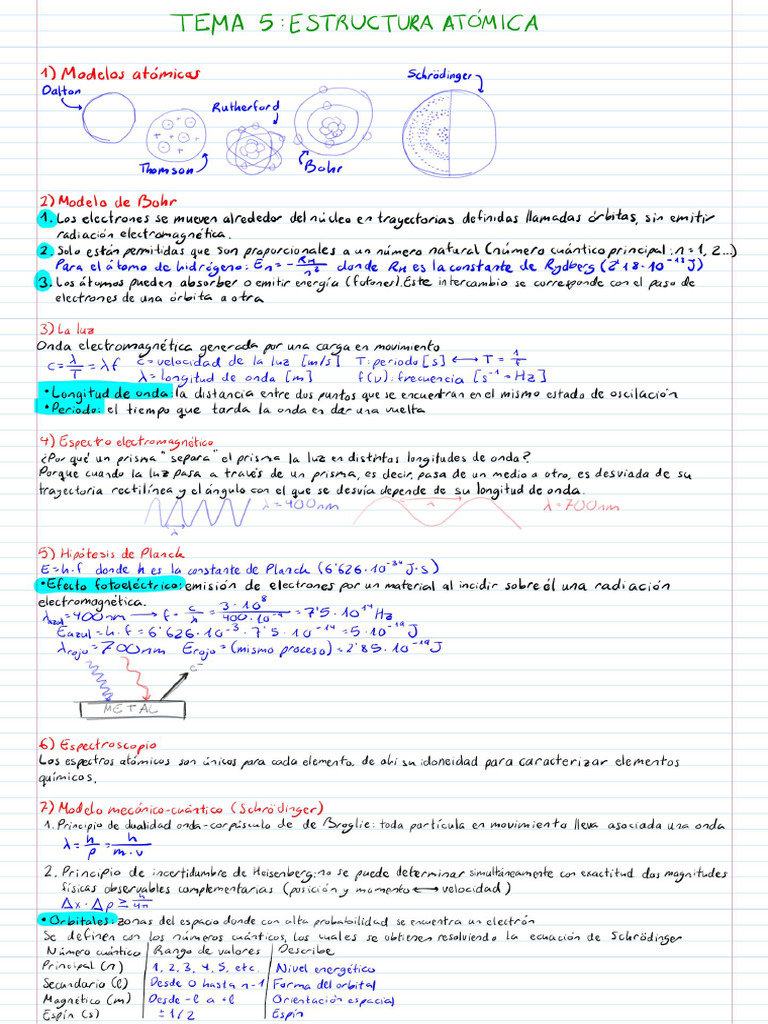 TEMA 5: ESTRUCTURA ATÓMICA
1) Modelos atómicos
Schrödinger
Dalton
Rutherford
Thomson
Bohr
2) Modelo de Bohr
1. Los electrones se mueven alrededor del núcleo en trayectorias definidas llamadas órbitas, sin emitir
radiación electromagnética.
2. Solo están permitidas que son proporcionales a un número natural (número cuántico principal: n=1, 2...)
Para el átomo de hidrógeno: En = - RH/n² donde RH es la constante de Rydberg (2'18·10⁻¹⁸ J)
3. Los átomos pueden absorber o emitir energía (fotones). Este intercambio se corresponde con el paso de
electrones de una órbita a otra
3) La luz
Onda electromagnética generada por una carga en movimiento
c = λ/T = λf c = velocidad de la luz [m/s] T: periodo [s] ⟷ T = 1/f
λ = longitud de onda [m] f(ν): frecuencia [s⁻¹ = Hz]
• Longitud de onda: la distancia entre dos puntos que se encuentran en el mismo estado de oscilación
• Periodo: el tiempo que tarda la onda en dar una vuelta
4) Espectro electromagnético
¿Por qué un prisma "separa" el prisma la luz en distintos longitudes de onda?
Porque cuando la luz pasa a través de un prisma, es decir, pasa de un medio a otro, es desviada de su
trayectoria rectilínea y el ángulo con el que se desvía depende de su longitud de onda.
λ = 400nm λ λ = 700nm
λ
5) Hipótesis de Planck
E = h·f donde h es la constante de Planck (6'626·10⁻³⁴ J·s)
• Efecto fotoeléctrico: emisión de electrones por un material al incidir sobre él una radiación
electromagnética.
λazul = 400nm ⟶ f = c/λ = 3·10⁸/400·10⁻⁹ = 7'5·10¹⁴ Hz
Eazul = h·f = 6'626·10⁻³·7'5·10⁻¹⁴ = 5·10⁻¹⁹ J
λrojo = 700nm Erojo = (mismo proceso) = 2'85·10⁻¹⁹ J
e⁻
METAL
6) Espectroscopio
Los espectros atómicos son únicos para cada elemento, de ahi su idoneidad para caracterizar elementos
químicos.
7) Modelo mecánico-cuántico (Schrödinger)
1. Principio de dualidad onda-corpúsculo de de Broglie: toda partícula en movimiento lleva asociada una onda
λ = h/p = h/m·v
2. Principio de incertidumbre de Heisenberg: no se puede determinar simultáneamente con exactitud dos magnitudes
físicas observables complementarias (posición y momento ⟷ velocidad)
Δx · Δp ≥ h/4π
• Orbitales: zonas del espacio donde con alta probabilidad se encuentra un electrón
Se definen con los números cuánticos, los cuales se obtienen resolviendo la ecuación de Schrödinger
Número cuántico | Rango de valores | Describe
Principal (n) | 1, 2, 3, 4, 5, etc. | Nivel energético
Secundario (l) | Desde 0 hasta n-1 | Forma del orbital
Magnético (m) | Desde -l a +l | Orientación espacial
Espín (s) | ±1/2 | Espín